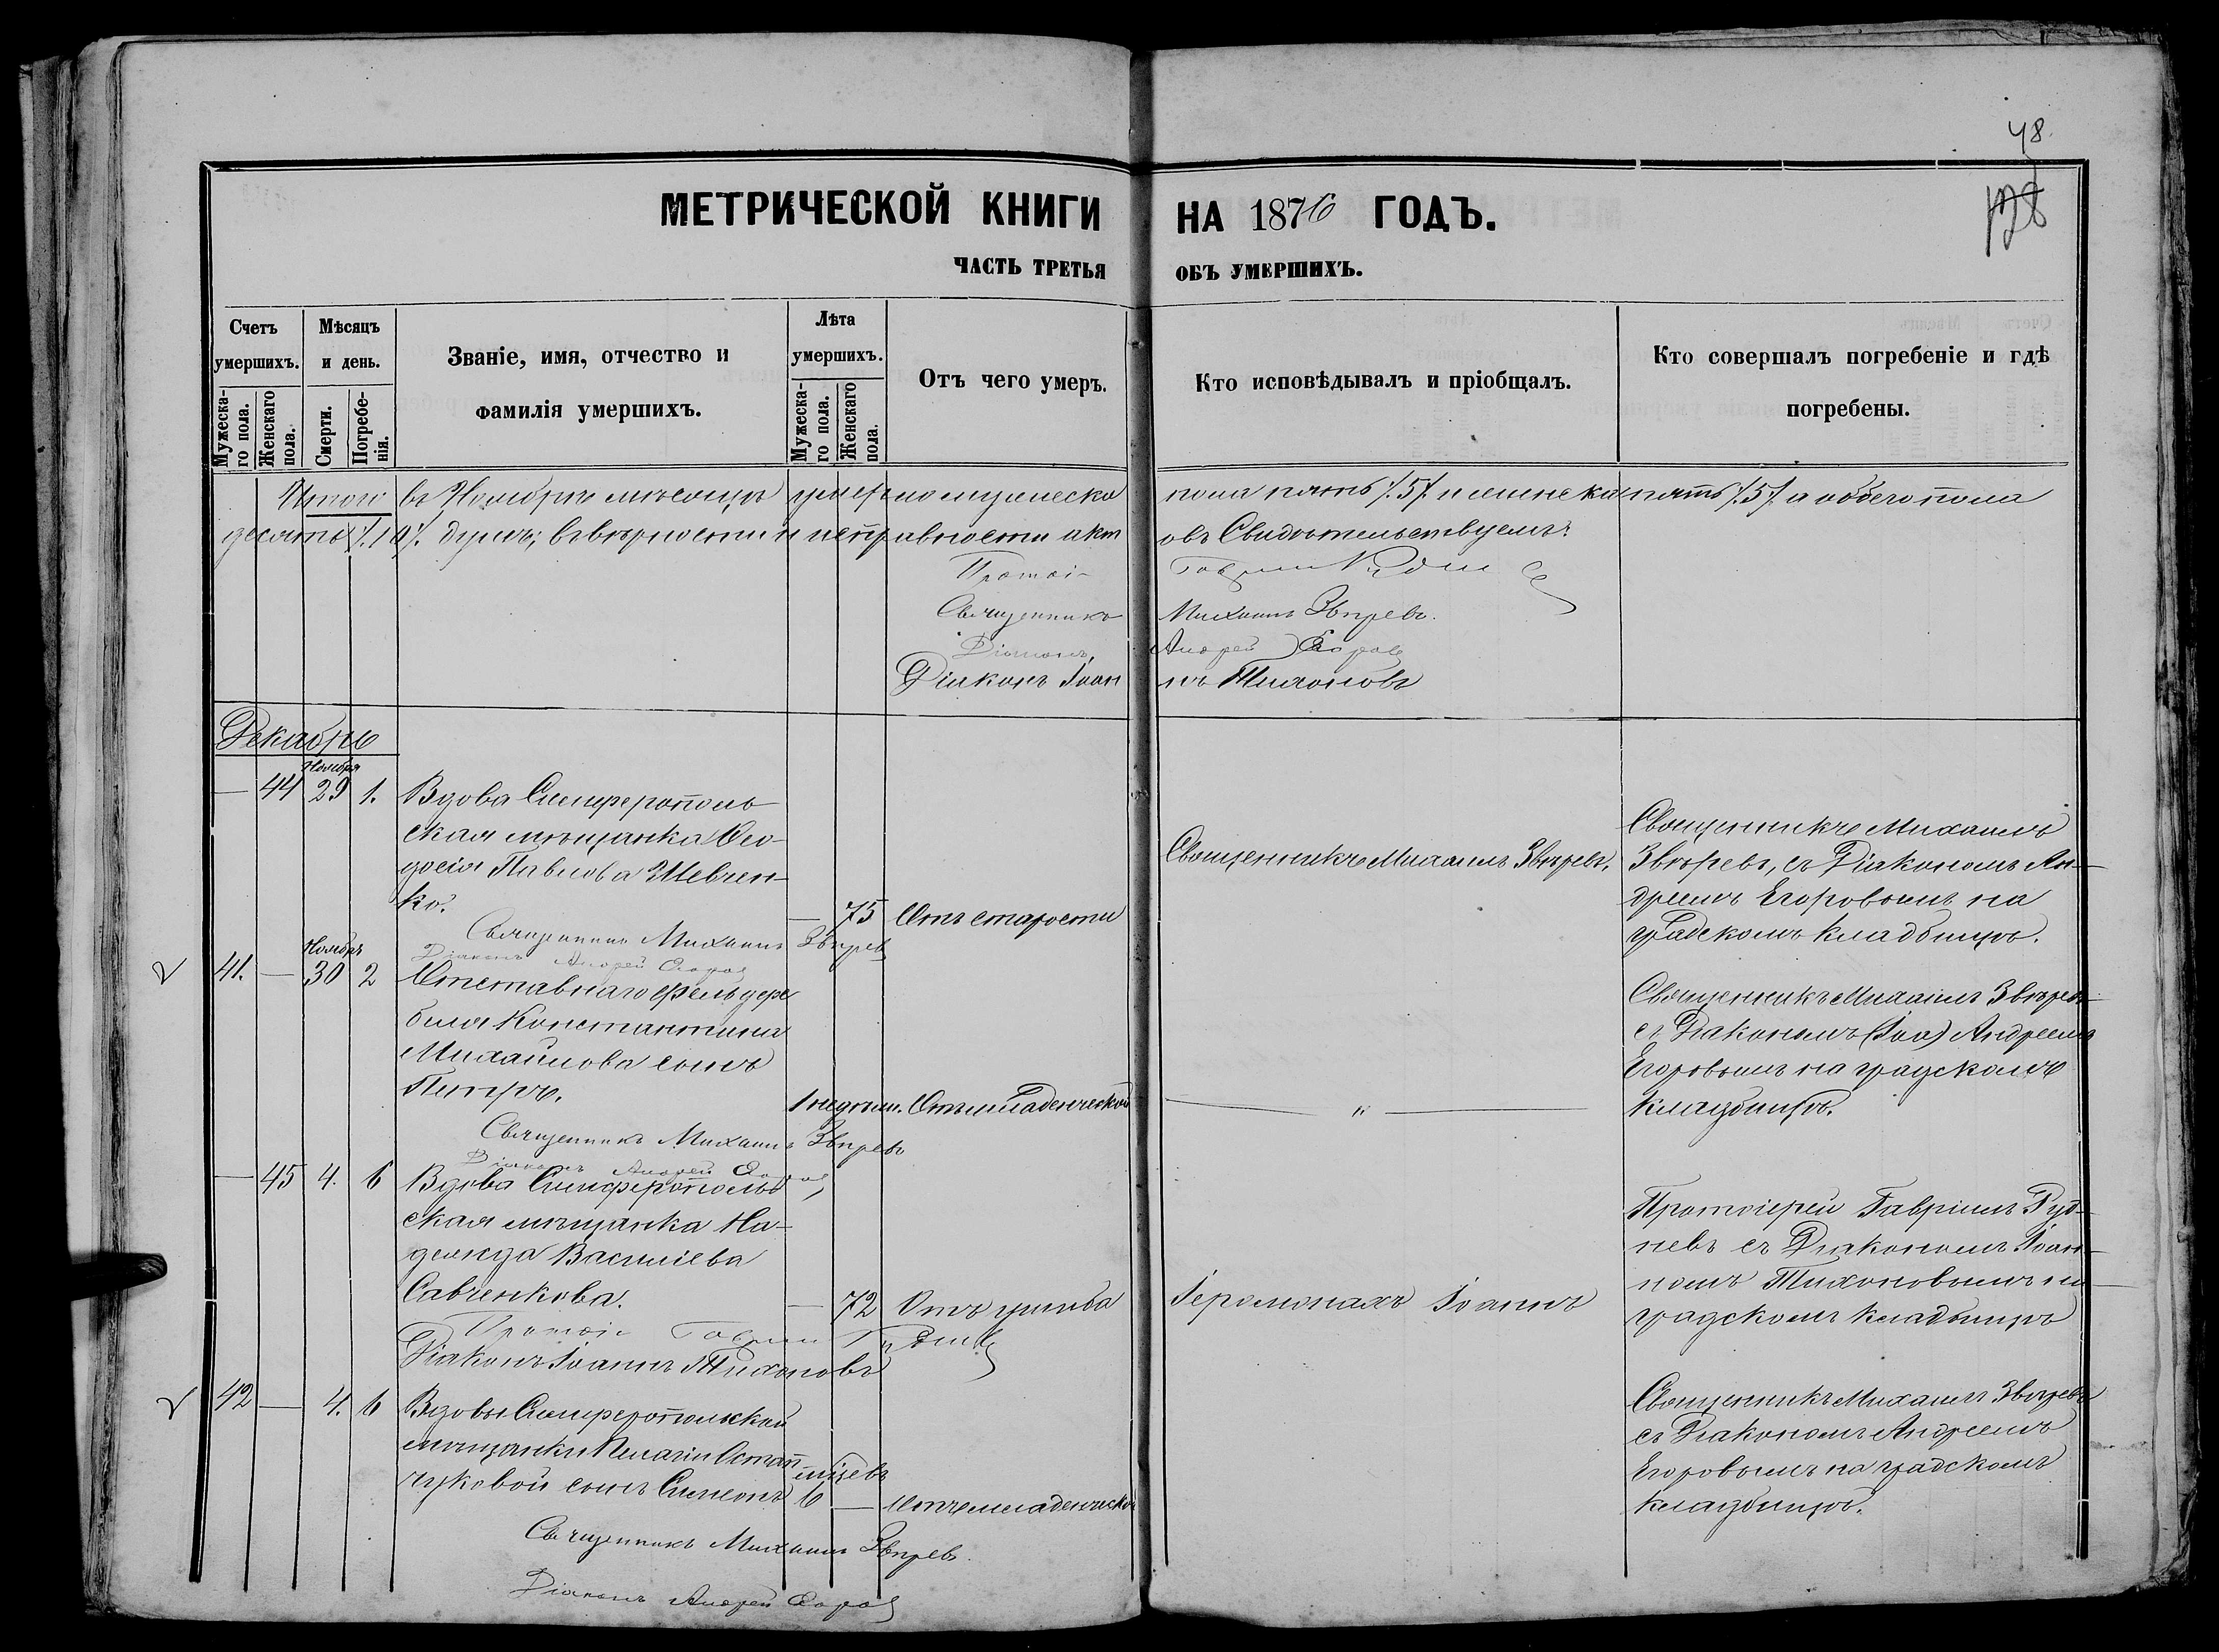 48.
138
МЕТРИЧЕСКОЙ КНИГИ НА 1876 ГОДЪ.
ЧАСТЬ ТРЕТЬЯ ОБЪ УМЕРШИХЪ.
Счетъ умершихъ.
Мужескаго пола.
Женскаго пола.
Мѣсяцъ и день.
Смерти.
Погребенія.
Званіе, имя, отчество и
фамилія умершихъ.
Лѣта умершихъ.
Мужескаго пола.
Женскаго пола.
Отъ чего умеръ.
Кто исповѣдывалъ и пріобщалъ.
Кто совершалъ погребеніе и гдѣ
погребены.
Итого въ Ноябрѣ мѣсяцѣ умерло мужеска пола пять /.5/. и женска пять /.5/. а обоего пола
десять /.10/. душъ; въ вѣрности и исправности актовъ Свидѣтельствуемъ:
Священникъ Михаилъ Звѣревъ.
Діаконъ Андрей Егоровъ
Діаконъ Іоаннъ Тихоновъ
Декабрь
Ноября
44 29 1.
Вдова Симферополь-
ская мѣщанка Ѳео-
досія Павлова Шевчен-
ко.
75 Отъ старости
Священникъ Михаилъ Звѣревъ.
Священникъ Михаилъ
Звѣревъ, съ Діакономъ Ан-
дреемъ Егоровымъ на
градскомъ кладбищѣ.
Священникъ Михаилъ Звѣревъ
Діаконъ Андрей Егоровъ
Ноябрь
41. 30 2
Отставнаго фельдфе
беля Константина
Михайлова сынъ
Петръ.
1 недѣли. Отъ младенческой
"
Священникъ Михаилъ Звѣревъ
съ Діакономъ (Іоа) Андреемъ
Егоровымъ на градскомъ
кладбищѣ.
Священникъ Михаилъ Звѣревъ
Діаконъ Андрей Егоровъ
45 4. 6
Вдова Симферополь
ская мѣщанка На-
дежда Василіева
Савченкова.
72 Отъ ушиба
Іеромонахъ Іоаннъ
Протоіерей Гавріилъ Руд-
невъ съ Діакономъ Іоан-
номъ Тихоновымъ на
градскомъ кладбищѣ
Діаконъ Іоаннъ Тихоновъ
42 4. 6
Вдовы Симферопольской
мѣщанки Пелагіи Остап
чуковой сынъ Симеонъ
мѣсяцевъ
6 Отъ младенческой
Священникъ Михаилъ Звѣревъ
съ Діакономъ Андреемъ
Егоровымъ на градскомъ
кладбищѣ.
Священникъ Михаилъ Звѣревъ.
Діаконъ Андрей Егоровъ